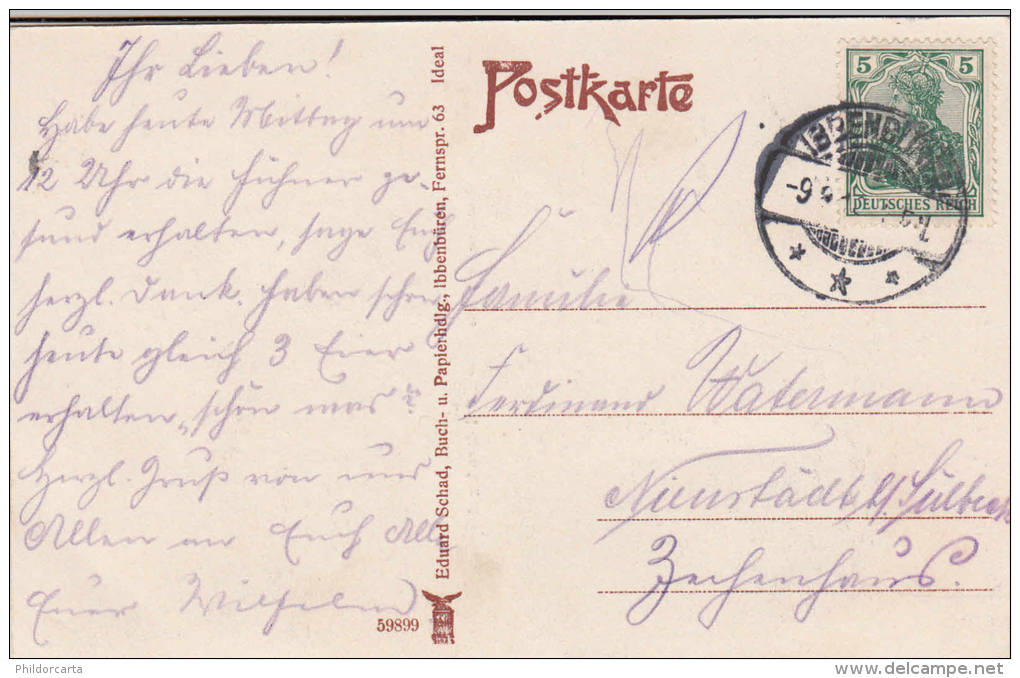 Ihr Lieben!
Habe heute Mittag um
12 Uhr die Hühner ge-
sund erhalten, sage Euch
herzl. Dank. haben schon
heute gleich 3 Eier
erhalten, schön was?
Herzl. Gruß von uns
Allen an Euch Alle
Euer Wilhelm
59899
Eduard Schad, Buch- u. Papierhdlg., Ibbenbüren, Fernspr. 63 Ideal
Postkarte
5 5
DEUTSCHES REICH
IBBENBÜREN
Familie
Ferdinand Watermann
Nienstädt b/Sülbeck
Zechenhaus.
Phildorcarta
www.delcampe.net